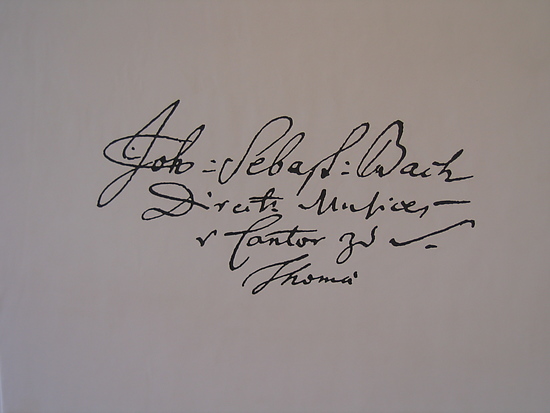 Joh: Sebast: Bach
Direct: Musices
Cantor zu
Thomä